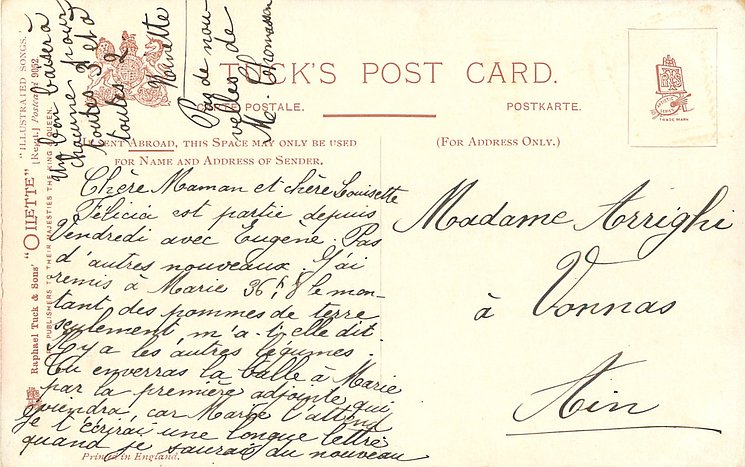 TUCK'S POST CARD.
CARTE POSTALE.
POSTKARTE.
If sent Abroad, this Space may only be used
for Name and Address of Sender.
(For Address Only.)
TRADE MARK
"ILLUSTRATED SONGS."
"OILETTE" [Regd.] Postcard 9052.
Raphael Tuck & Sons'
ART PUBLISHERS TO THEIR MAJESTIES THE KING & QUEEN.
Chère Maman et chère Louisette
Félicia est partie depuis
Vendredi avec Eugène. Pas
d'autres nouveaux. J'ai
remis à Marie 36f,8 le mon-
tant des pommes de terre
seulement, m'a-t-elle dit.
Il y a les autres légumes.
Tu enverras la balle à Marie
par la première adjointe qui
viendra, car Marie l'attend
Je t'écrirai une longue lettre
quand je saurai du nouveau
Un bon baiser à
chacune pour
toutes 2 et à
toutes 2
Ninette
Pas de nou-
velles de
Me. Thomasson
Madame Arrighi
à Vonnas
Ain
Printed in England.